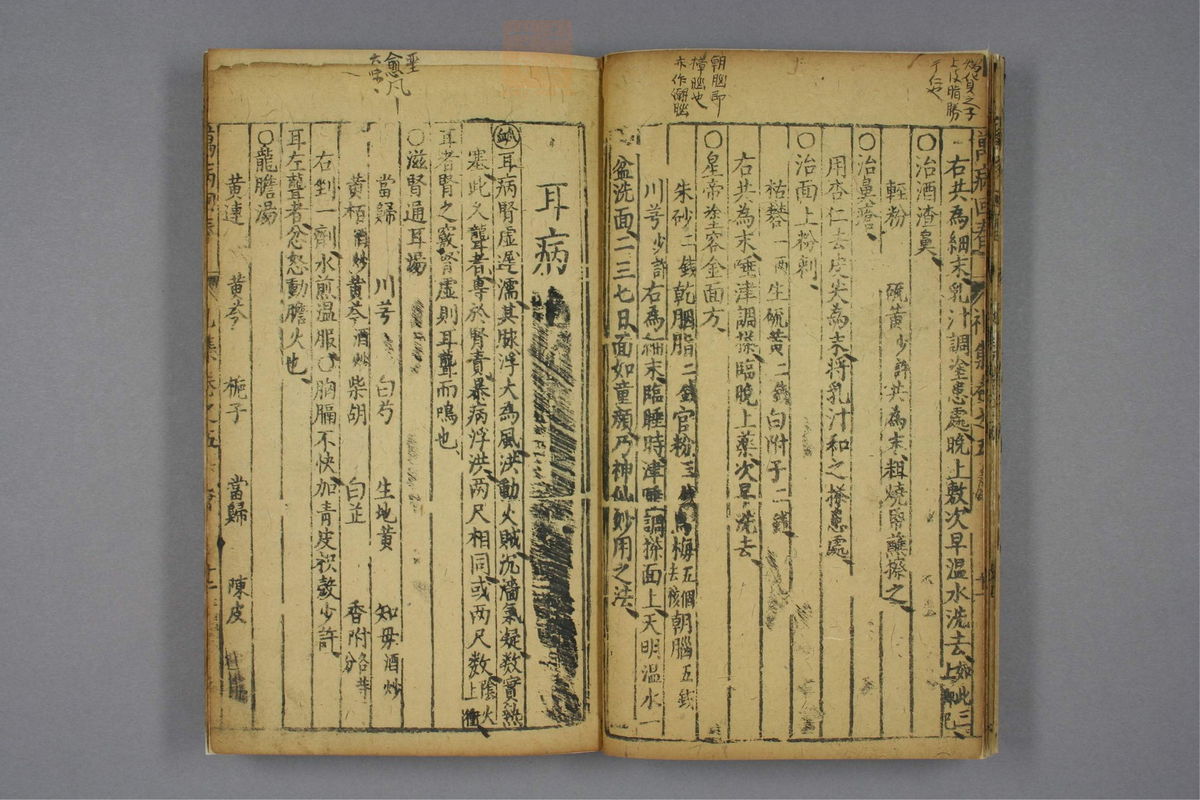 右共為細末乳汁調塗患處晚上敷次早温水洗去如此三
上
〇治酒渣鼻
輕粉 硫黄少許共為末粗燒帋蘸擦之
〇治鼻瘡
用杏仁去皮尖為末將乳汁和之搽患處
〇治面上粉刺
枯礬一两 生硫黄二錢 白附子二錢
右共為末唾津調搽臨晚上藥次早洗去
〇皇帝塗容金面方
朱砂二錢 乾胭脂二錢 官粉三錢 烏梅五個去核 朝腦五錢
川芎少許右為細末臨睡時津唾調搽面上天明温水一
盆洗面二三七日面如童顔乃神仙妙用之法
朝腦即
樟腦也
亦作潮腦
耳病
耳病腎虚遲濡其脉浮大為風洪動火賊沉濇氣凝数實熱
塞此久聾者專於腎責暴病浮洪两尺相同或两尺数陰火
上衝
耳者腎之竅腎虚則耳聾而鳴也
〇滋腎通耳湯
當歸 川芎 白芍 生地黄 知母酒炒
黄栢酒炒 黄芩酒炒 柴胡 白芷 香附各等分
右剉一劑水煎温服〇胸膈不快加青皮枳殼少許
耳左聾者忿怒動膽火也
〇龍膽湯
黄連 黄芩 梔子 當歸 陳皮
愈风